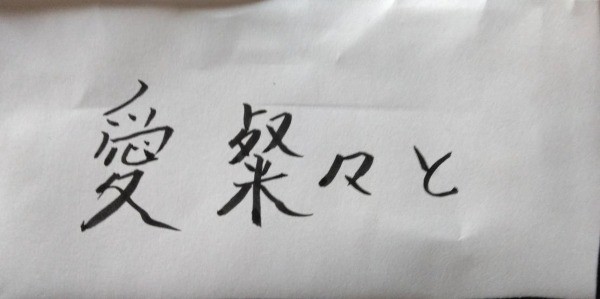 愛 粲々と